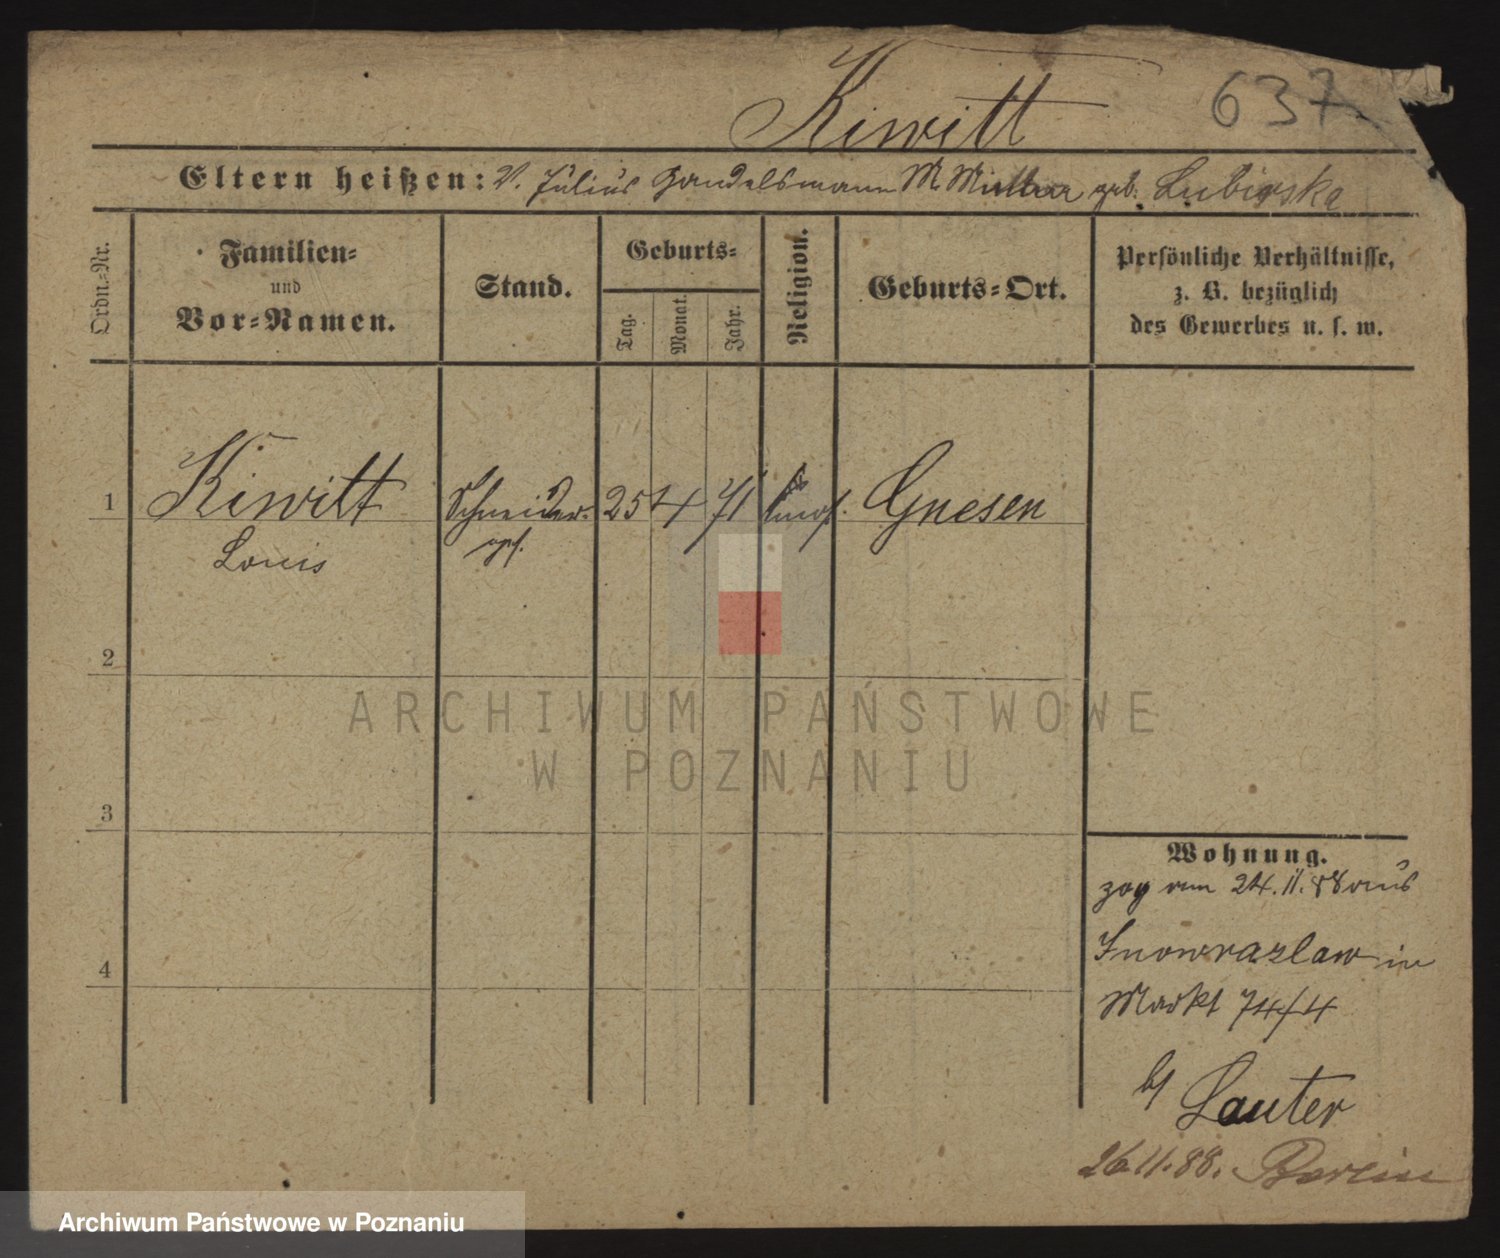 Kiwitt 637
Eltern heißen: V. Julius Handelsmann M geb. Lubinska
Ordn.-Nr.
Familien-
und
Vor-Namen.
Stand.
Geburts-
Tag.
Monat.
Jahr.
Religion.
Geburts-Ort.
Persönliche Verhältnisse,
z. B. bezüglich
des Gewerbes u. s. w.
1 Kiwitt Schneider- 25 4 71 Gnesen
Louis
2
3
4
Wohnung.
zog am 24.11.88 aus
Inowrazlaw in
Markt 74/4
bj Lauter
26.11.88. Berlin
ARCHIWUM PAŃSTWOWE
W POZNANIU
Archiwum Państwowe w Poznaniu